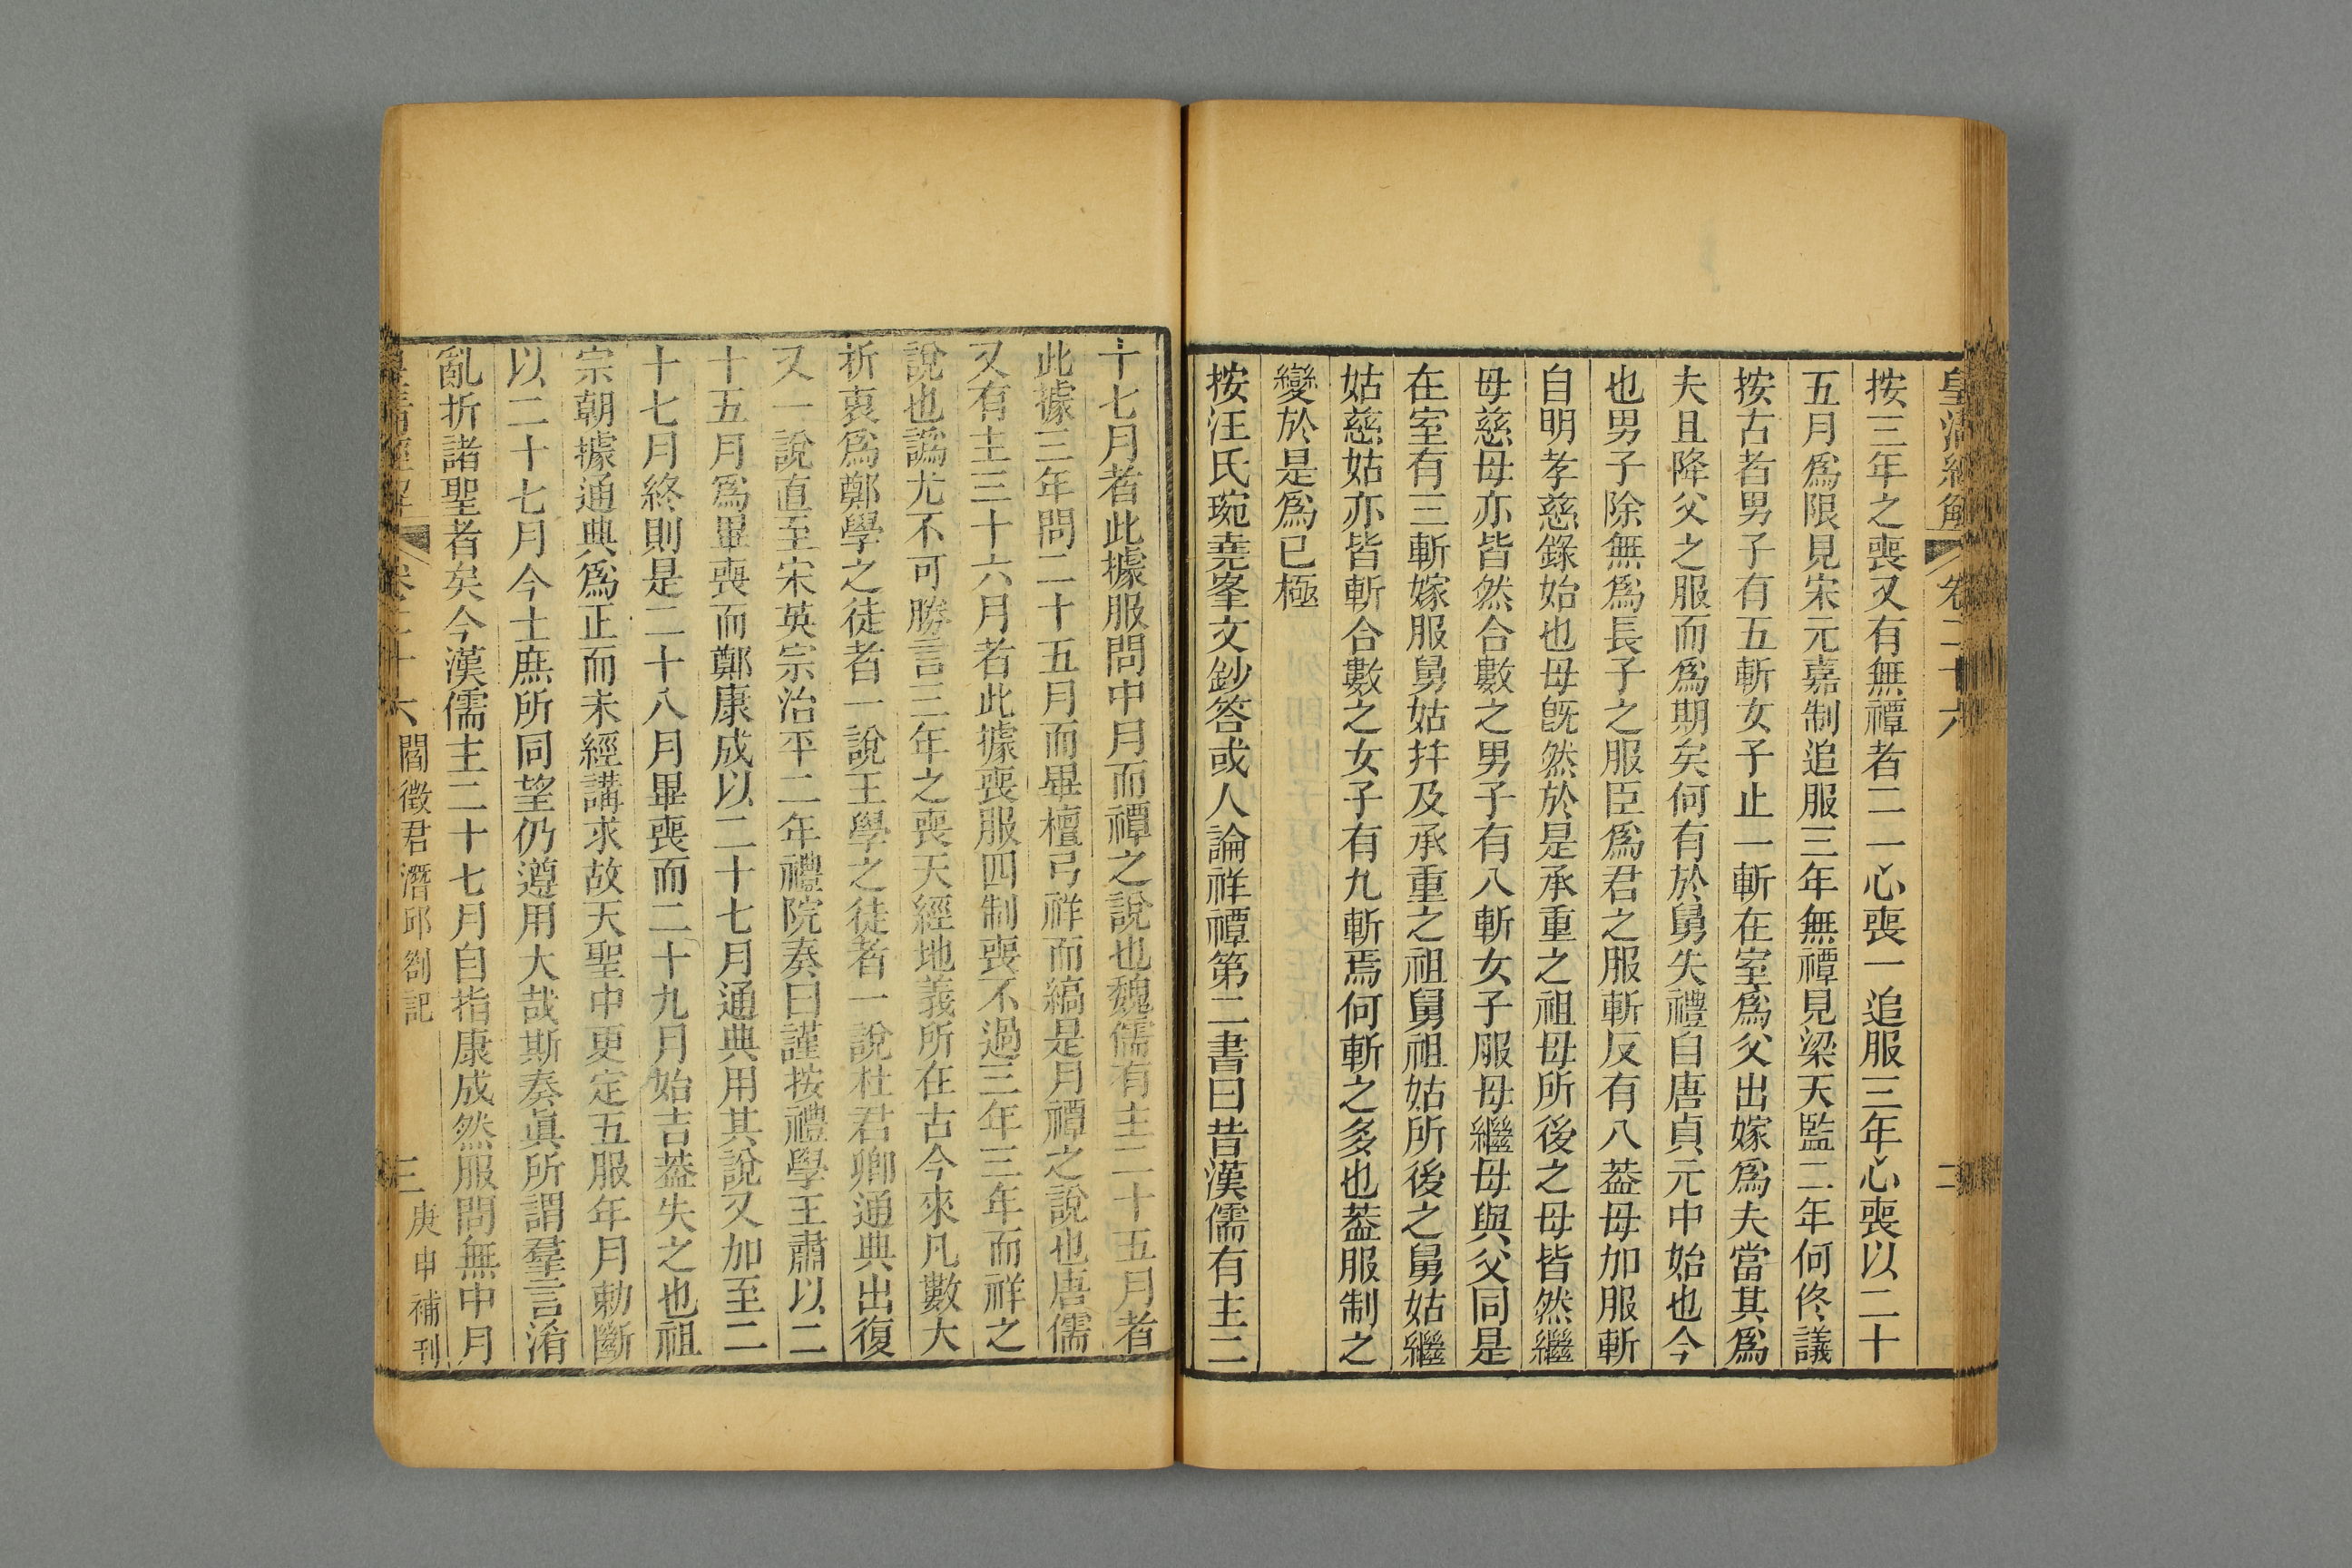 皇清經解 卷二十六 二
按三年之喪又有無禫者二一心喪一追服三年心喪以二十
五月爲限見宋元嘉制追服三年無禫見梁天監二年何佟議
按古者男子有五斬女子止一斬在室爲父出嫁爲夫當其爲
夫且降父之服而爲期矣何有於舅失禮自唐貞元中始也今
也男子除無爲長子之服臣爲君之服斬反有八葢母加服斬
自明孝慈錄始也母旣然於是承重之祖母所後之母皆然繼
母慈母亦皆然合數之男子有八斬女子服母繼母與父同是
在室有三斬嫁服舅姑幷及承重之祖舅祖姑所後之舅姑繼
姑慈姑亦皆斬合數之女子有九斬焉何斬之多也葢服制之
變於是爲已極
按汪氏琬堯峯文鈔答或人論祥禫第二書曰昔漢儒有主二
十七月者此據服問中月而禫之說也魏儒有主二十五月者
此據三年問二十五月而畢檀弓祥而縞是月禫之說也唐儒
又有主三十六月者此據喪服四制喪不過三年三年而祥之
說也譌尤不可勝言三年之喪天經地義所在古今來凡數大
折衷爲鄭學之徒者一說王學之徒者一說杜君卿通典出復
又一說直至宋英宗治平二年禮院奏曰謹按禮學王肅以二
十五月爲畢喪而鄭康成以二十七月通典用其說又加至二
十七月終則是二十八月畢喪而二十九月始吉葢失之也祖
宗朝據通典爲正而未經講求故天聖中更定五服年月勅斷
以二十七月今士庶所同望仍遵用大哉斯奏眞所謂羣言淆
亂折諸聖者矣今漢儒主二十七月自指康成然服問無中月
皇清經解 卷二十六 閻徵君潛邱劄記 三 庚申補刊